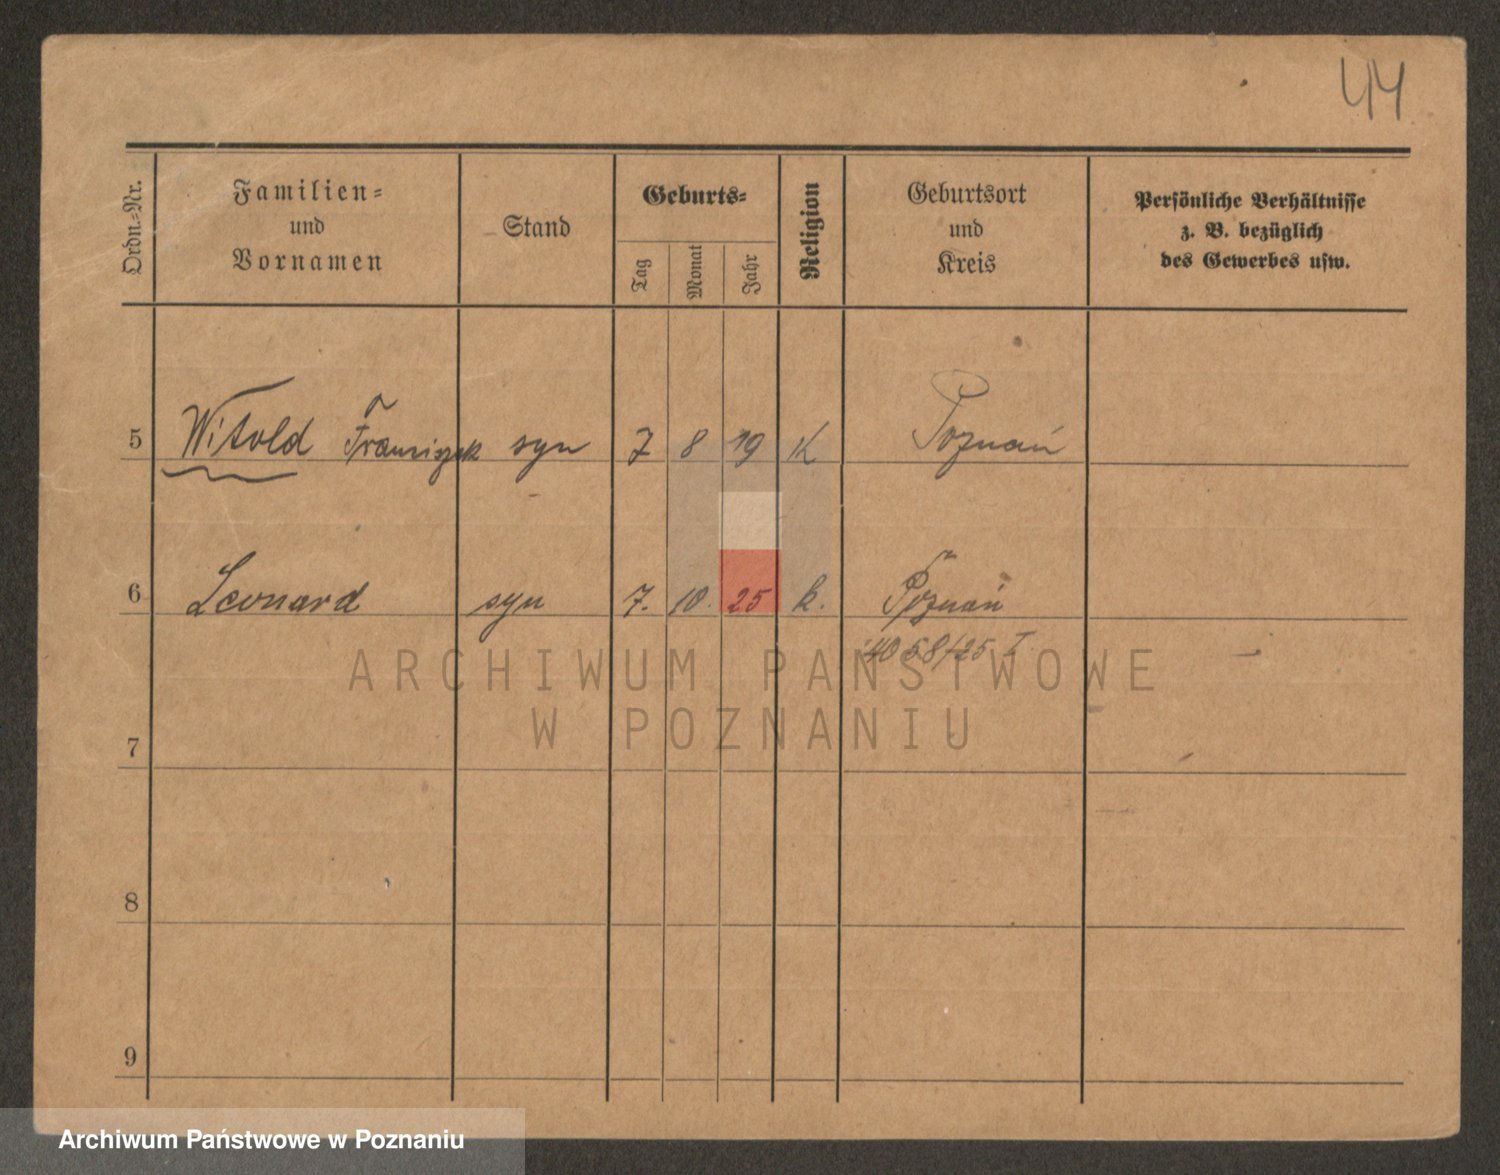 44
Ordn.-Nr.
Familien-
und
Vornamen
Stand
Geburts-
Tag
Monat
Jahr
Religion
Geburtsort
und
Kreis
Persönliche Verhältnisse
z. B. bezüglich
des Gewerbes usw.
5 Witold Franciszek syn 7 8 19 K Poznań
6 Leonard syn 7. 10. 25 k. Poznań
4058/25 I
ARCHIWUM PAŃSTWOWE
W POZNANIU
7
8
9
Archiwum Państwowe w Poznaniu